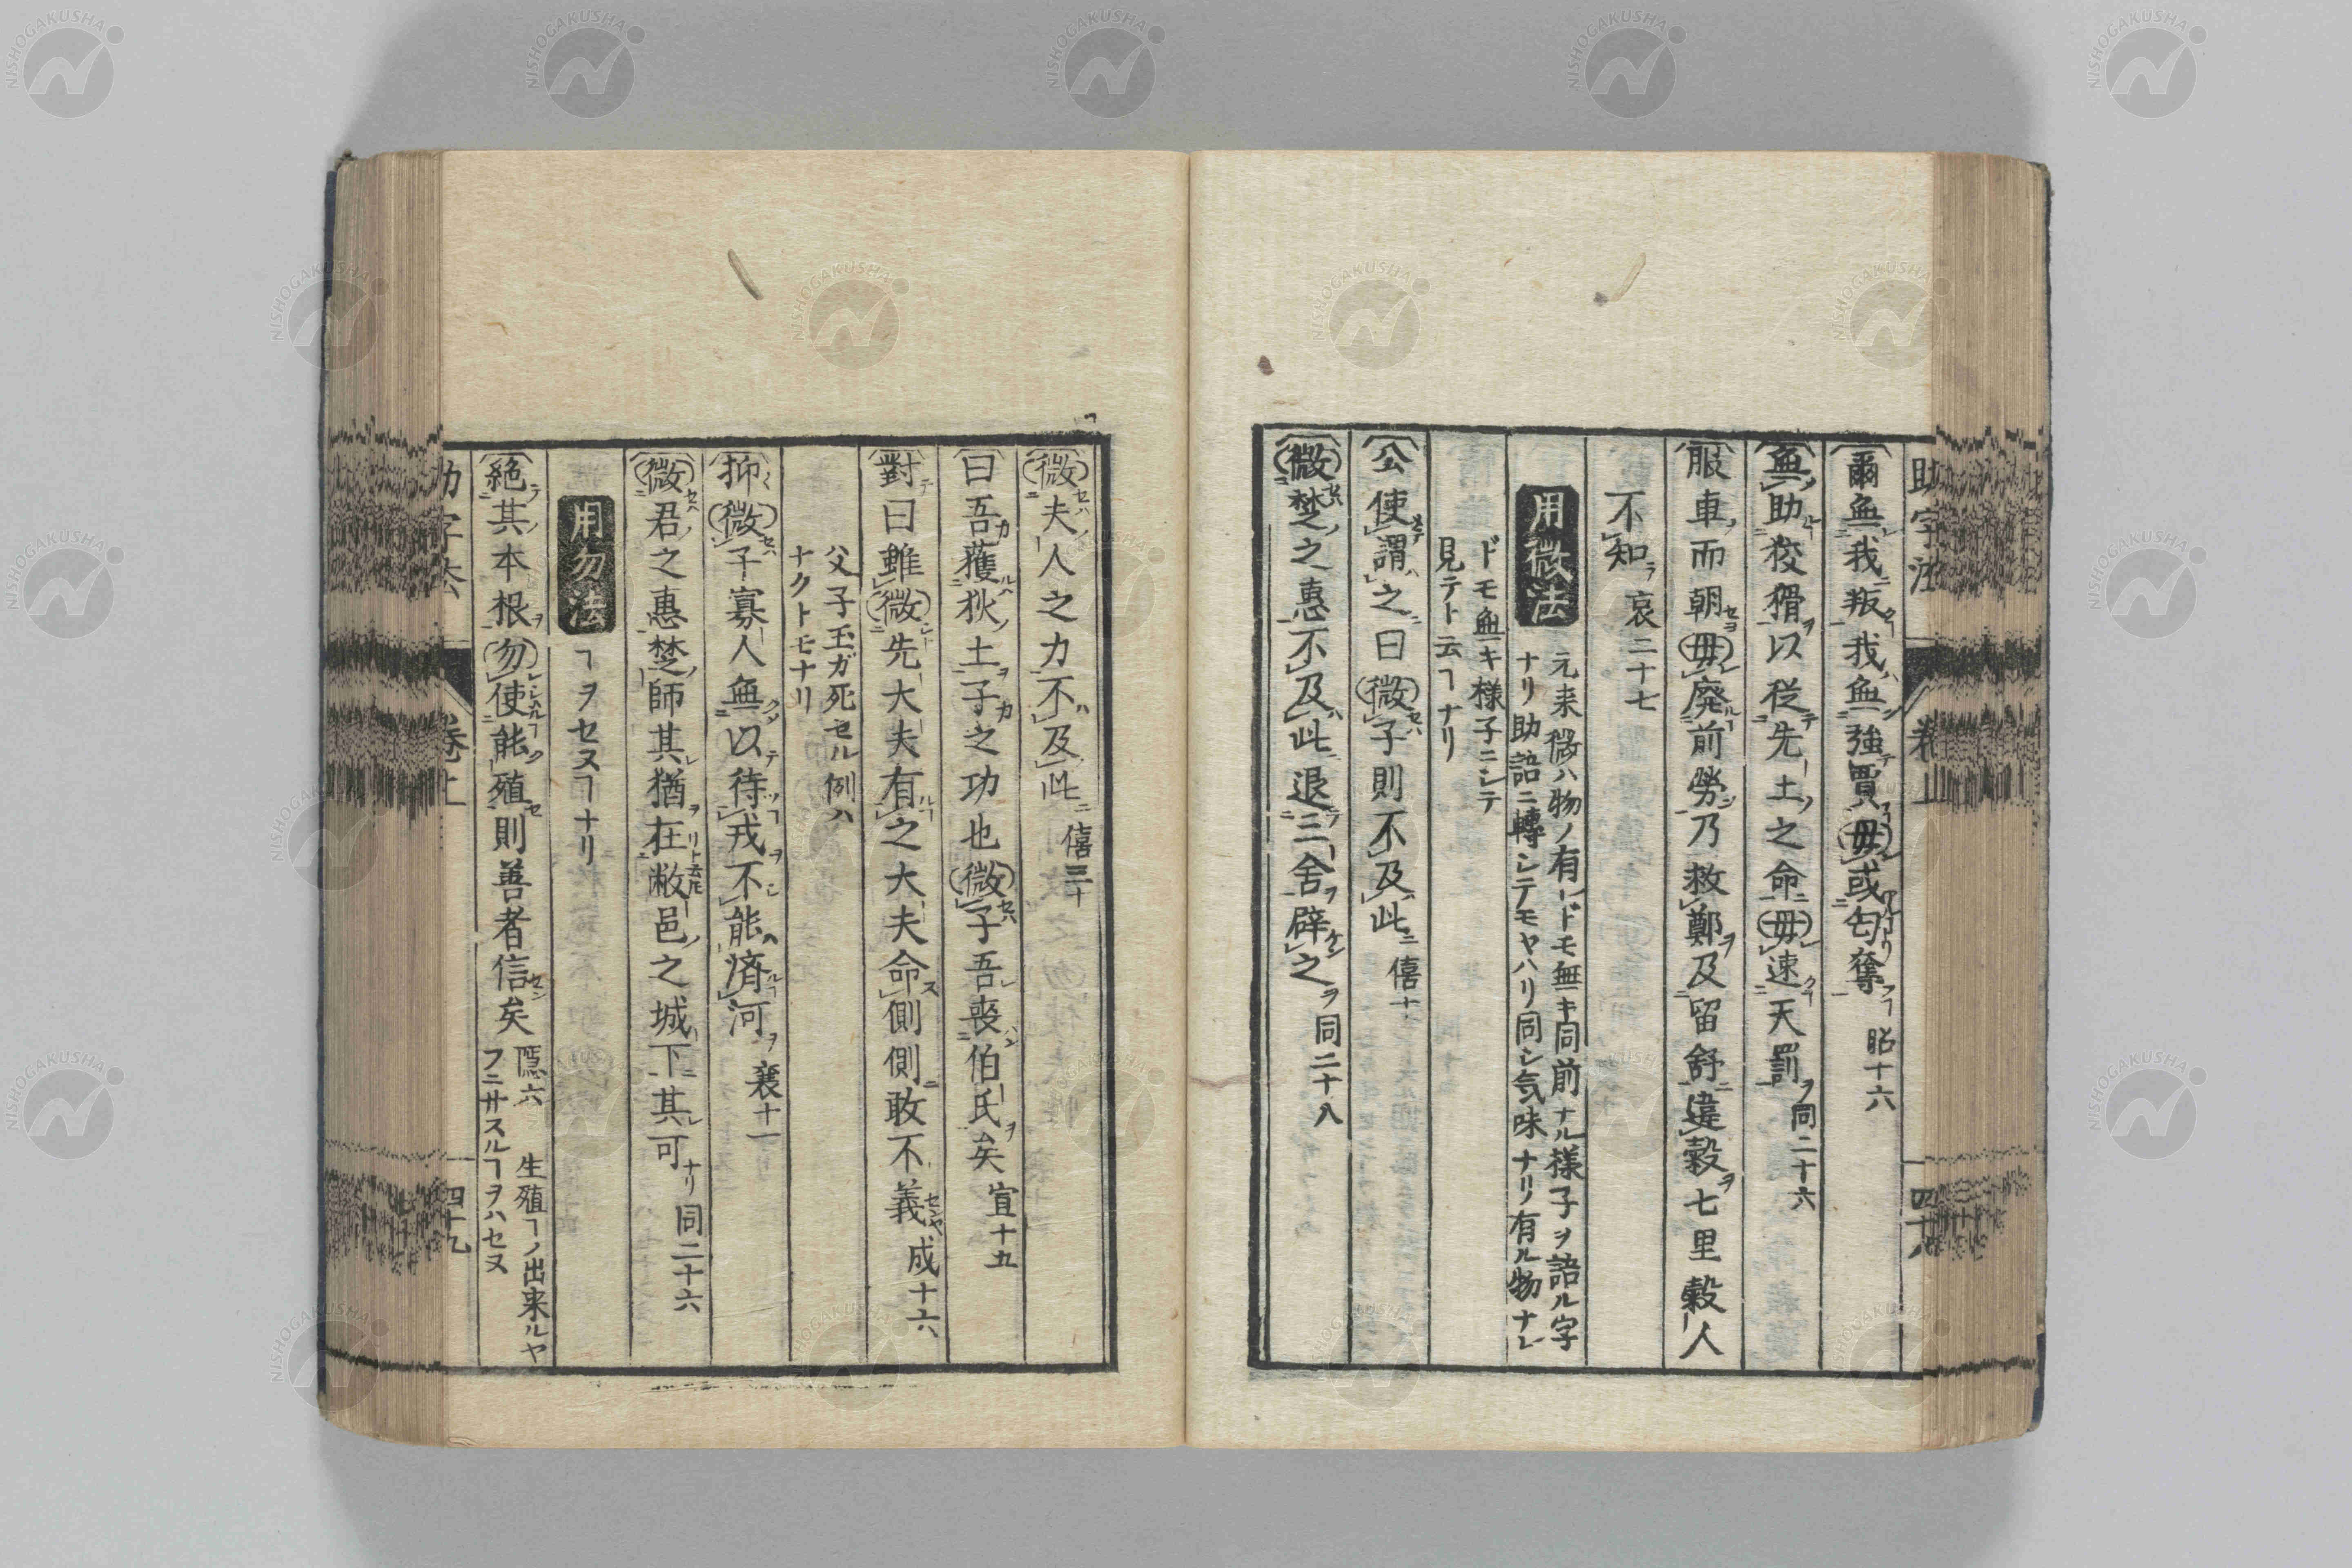 爾無我叛我無強賈毋或匄奪 昭十六
無助狡猾以從先土之命毋速天罰 同二十六
服車而朝毋廢前勞乃救鄭及留舒違穀七里穀人
不知 哀二十七
用微法 元来微ハ物ノ有レドモ無キ同前ナル様子ヲ語ル字
ナリ助語ニ轉シテモヤハリ同シ気味ナリ有ル物ナレ
ドモ無キ様子ニシテ
見テト云ヿナリ
公使謂之曰微子則不及此 僖十
微楚之惠不及此退三舍辟之 同二十八
微夫人之力不及此 僖三十
曰吾獲狄土子之功也微子吾喪伯氏矣 宣十五
對曰雖微先大夫有之大夫命側側敢不義 成十六
父子玉ガ死セル例ハ
ナクトモナリ
抑微子寡人無以待戎不能濟河 襄十一
微君之惠楚師其猶在敝邑之城下其可 同二十六
用勿法 ヿヲセヌヿナリ
絕其本根勿使能殖則善者信矣 隠六 生殖ヿノ出来ルヤ
フニサスルヿヲハセヌ
卷上
四十九
NISHOGAKUSHA